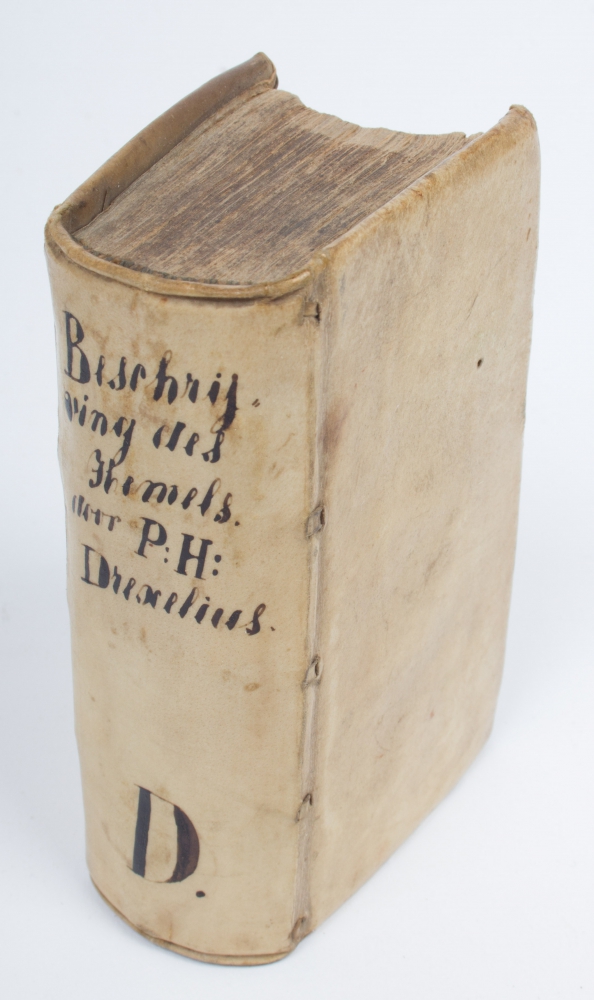 Beschrij-
ving des
Hemels.
door P: H:
Drexelius.
D.